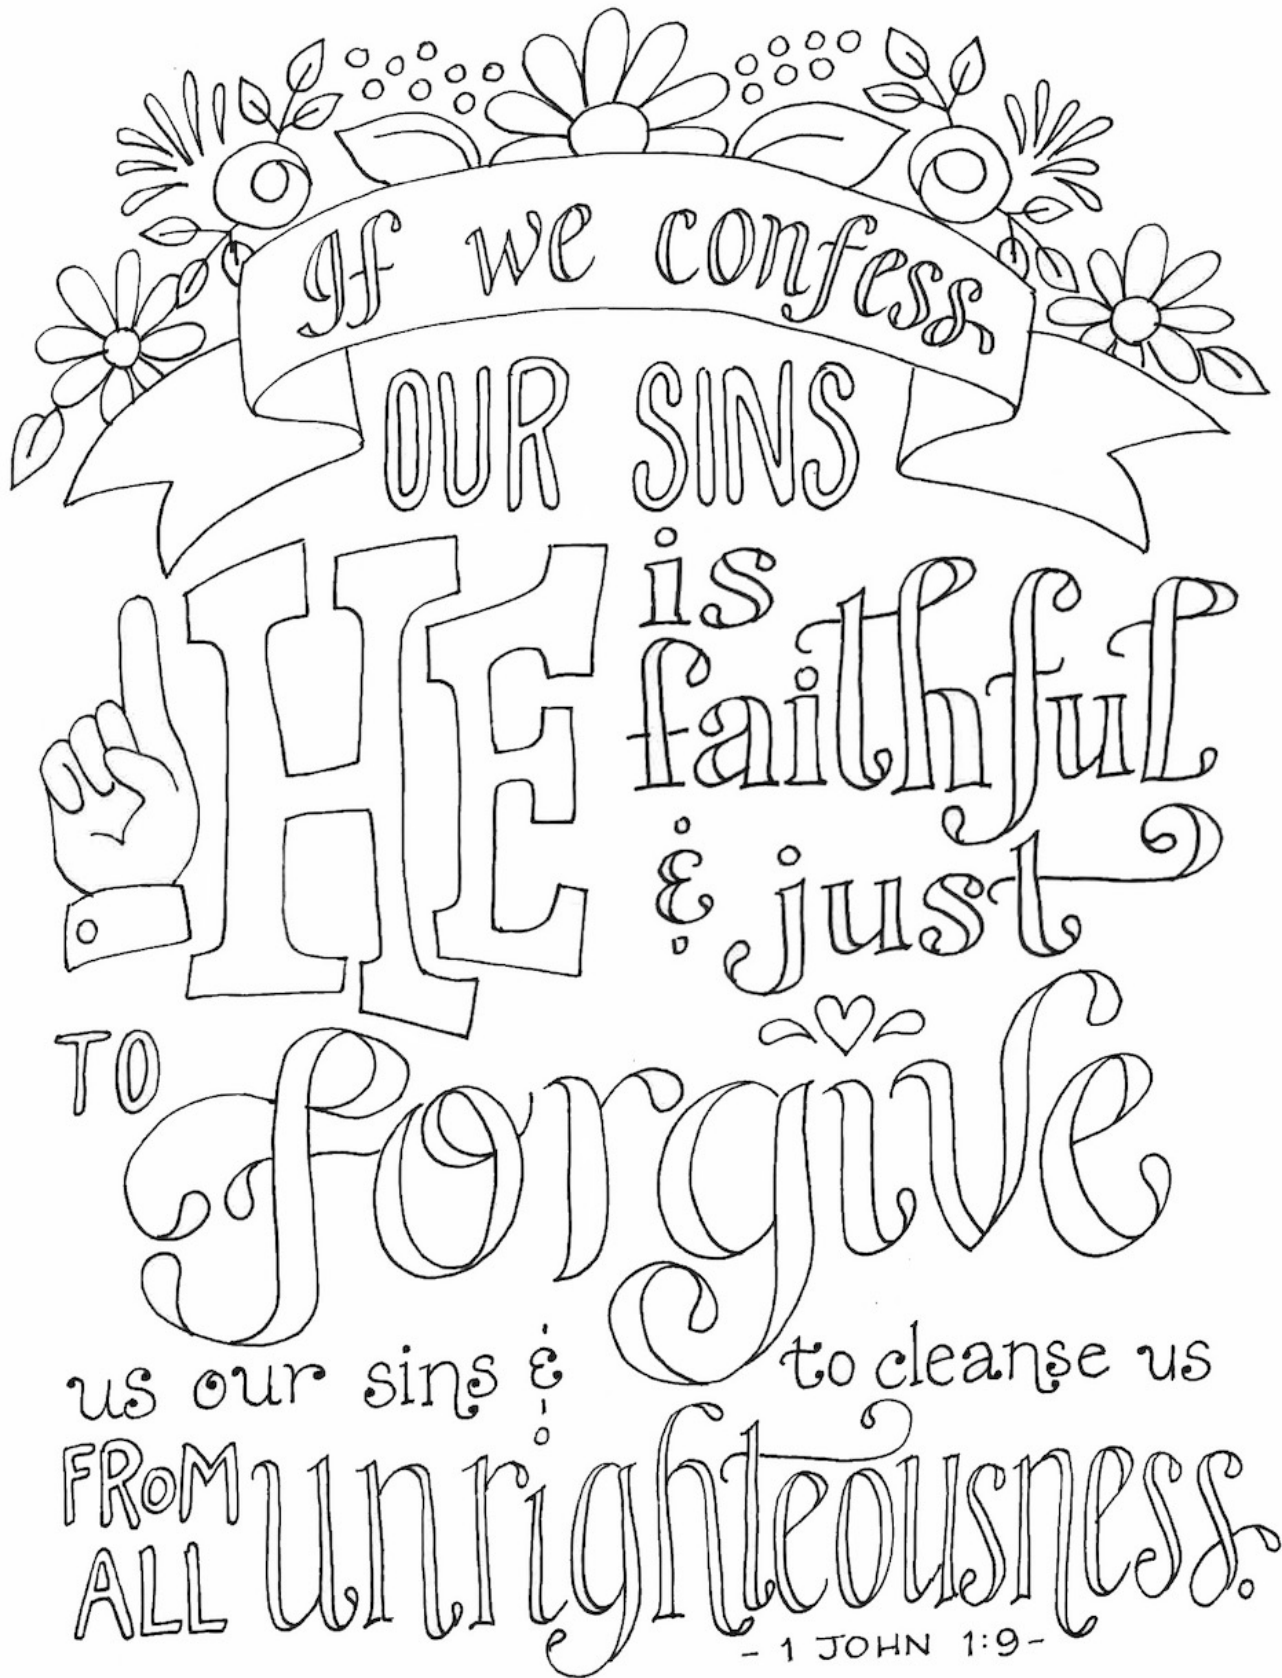 If we confess
OUR SINS
HE is
faithful
& just
TO forgive
us our sins & to cleanse us
FROM
ALL unrighteousness.
- 1 JOHN 1:9 -